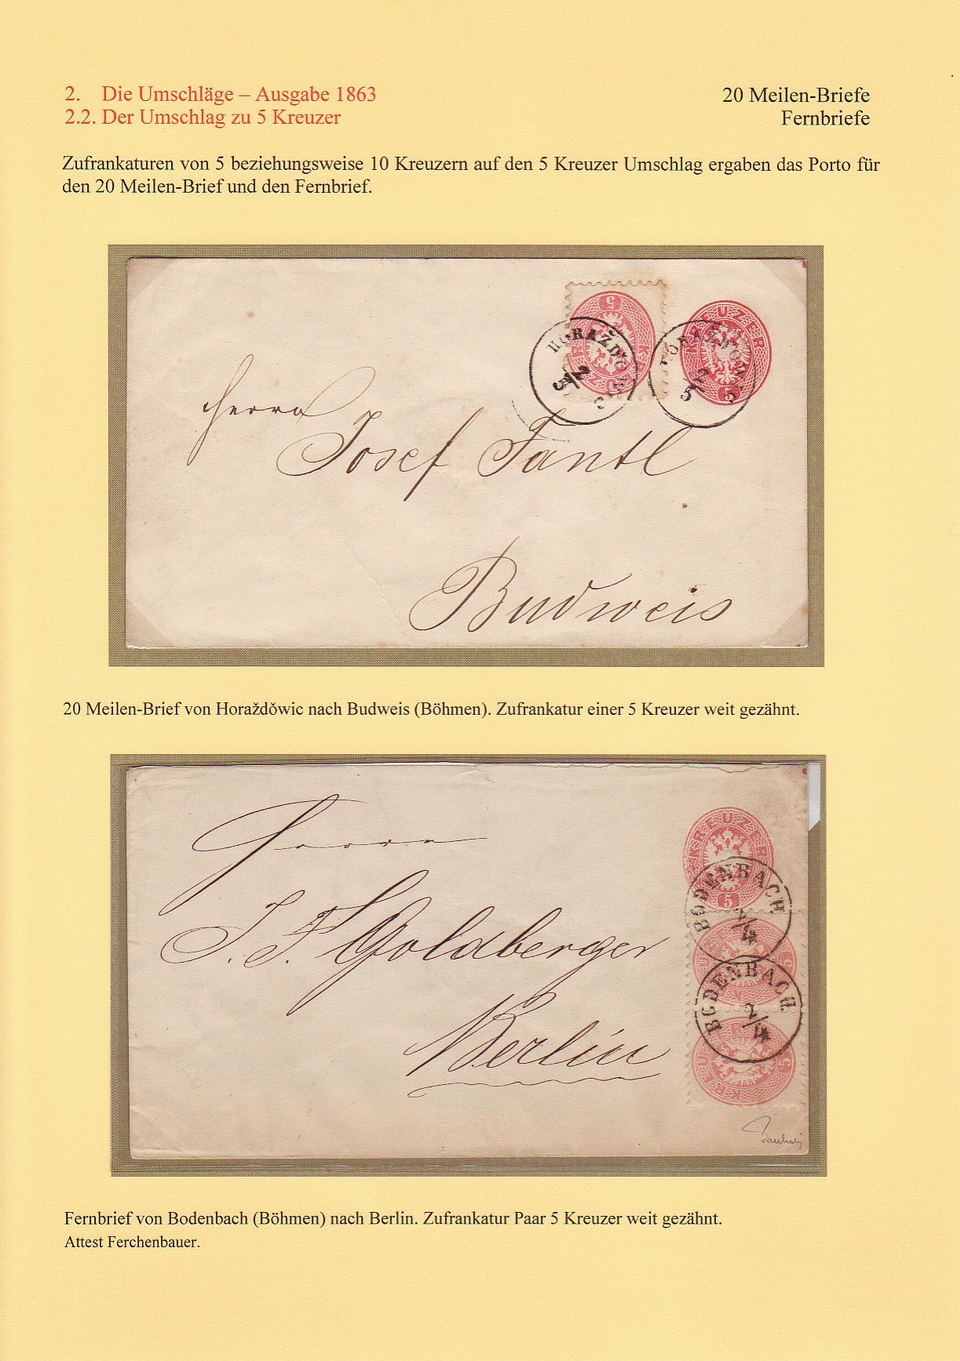 2. Die Umschläge – Ausgabe 1863
2.2. Der Umschlag zu 5 Kreuzer
20 Meilen-Briefe
Fernbriefe
Zufrankaturen von 5 beziehungsweise 10 Kreuzern auf den 5 Kreuzer Umschlag ergaben das Porto für
den 20 Meilen-Brief und den Fernbrief.
5
KREUZER
5
HORAŽDOWIC
2/5
HORAŽDOWIC
2/5
Herrn
Josef Fantl
Budweis
20 Meilen-Brief von Horaždǒwic nach Budweis (Böhmen). Zufrankatur einer 5 Kreuzer weit gezähnt.
KREUZER
5
Herrn
J. F. Goldberger
Berlin
BODENBACH
2/4
BODENBACH
2/4
5
KREUZER
5
Fernbrief von Bodenbach (Böhmen) nach Berlin. Zufrankatur Paar 5 Kreuzer weit gezähnt.
Attest Ferchenbauer.